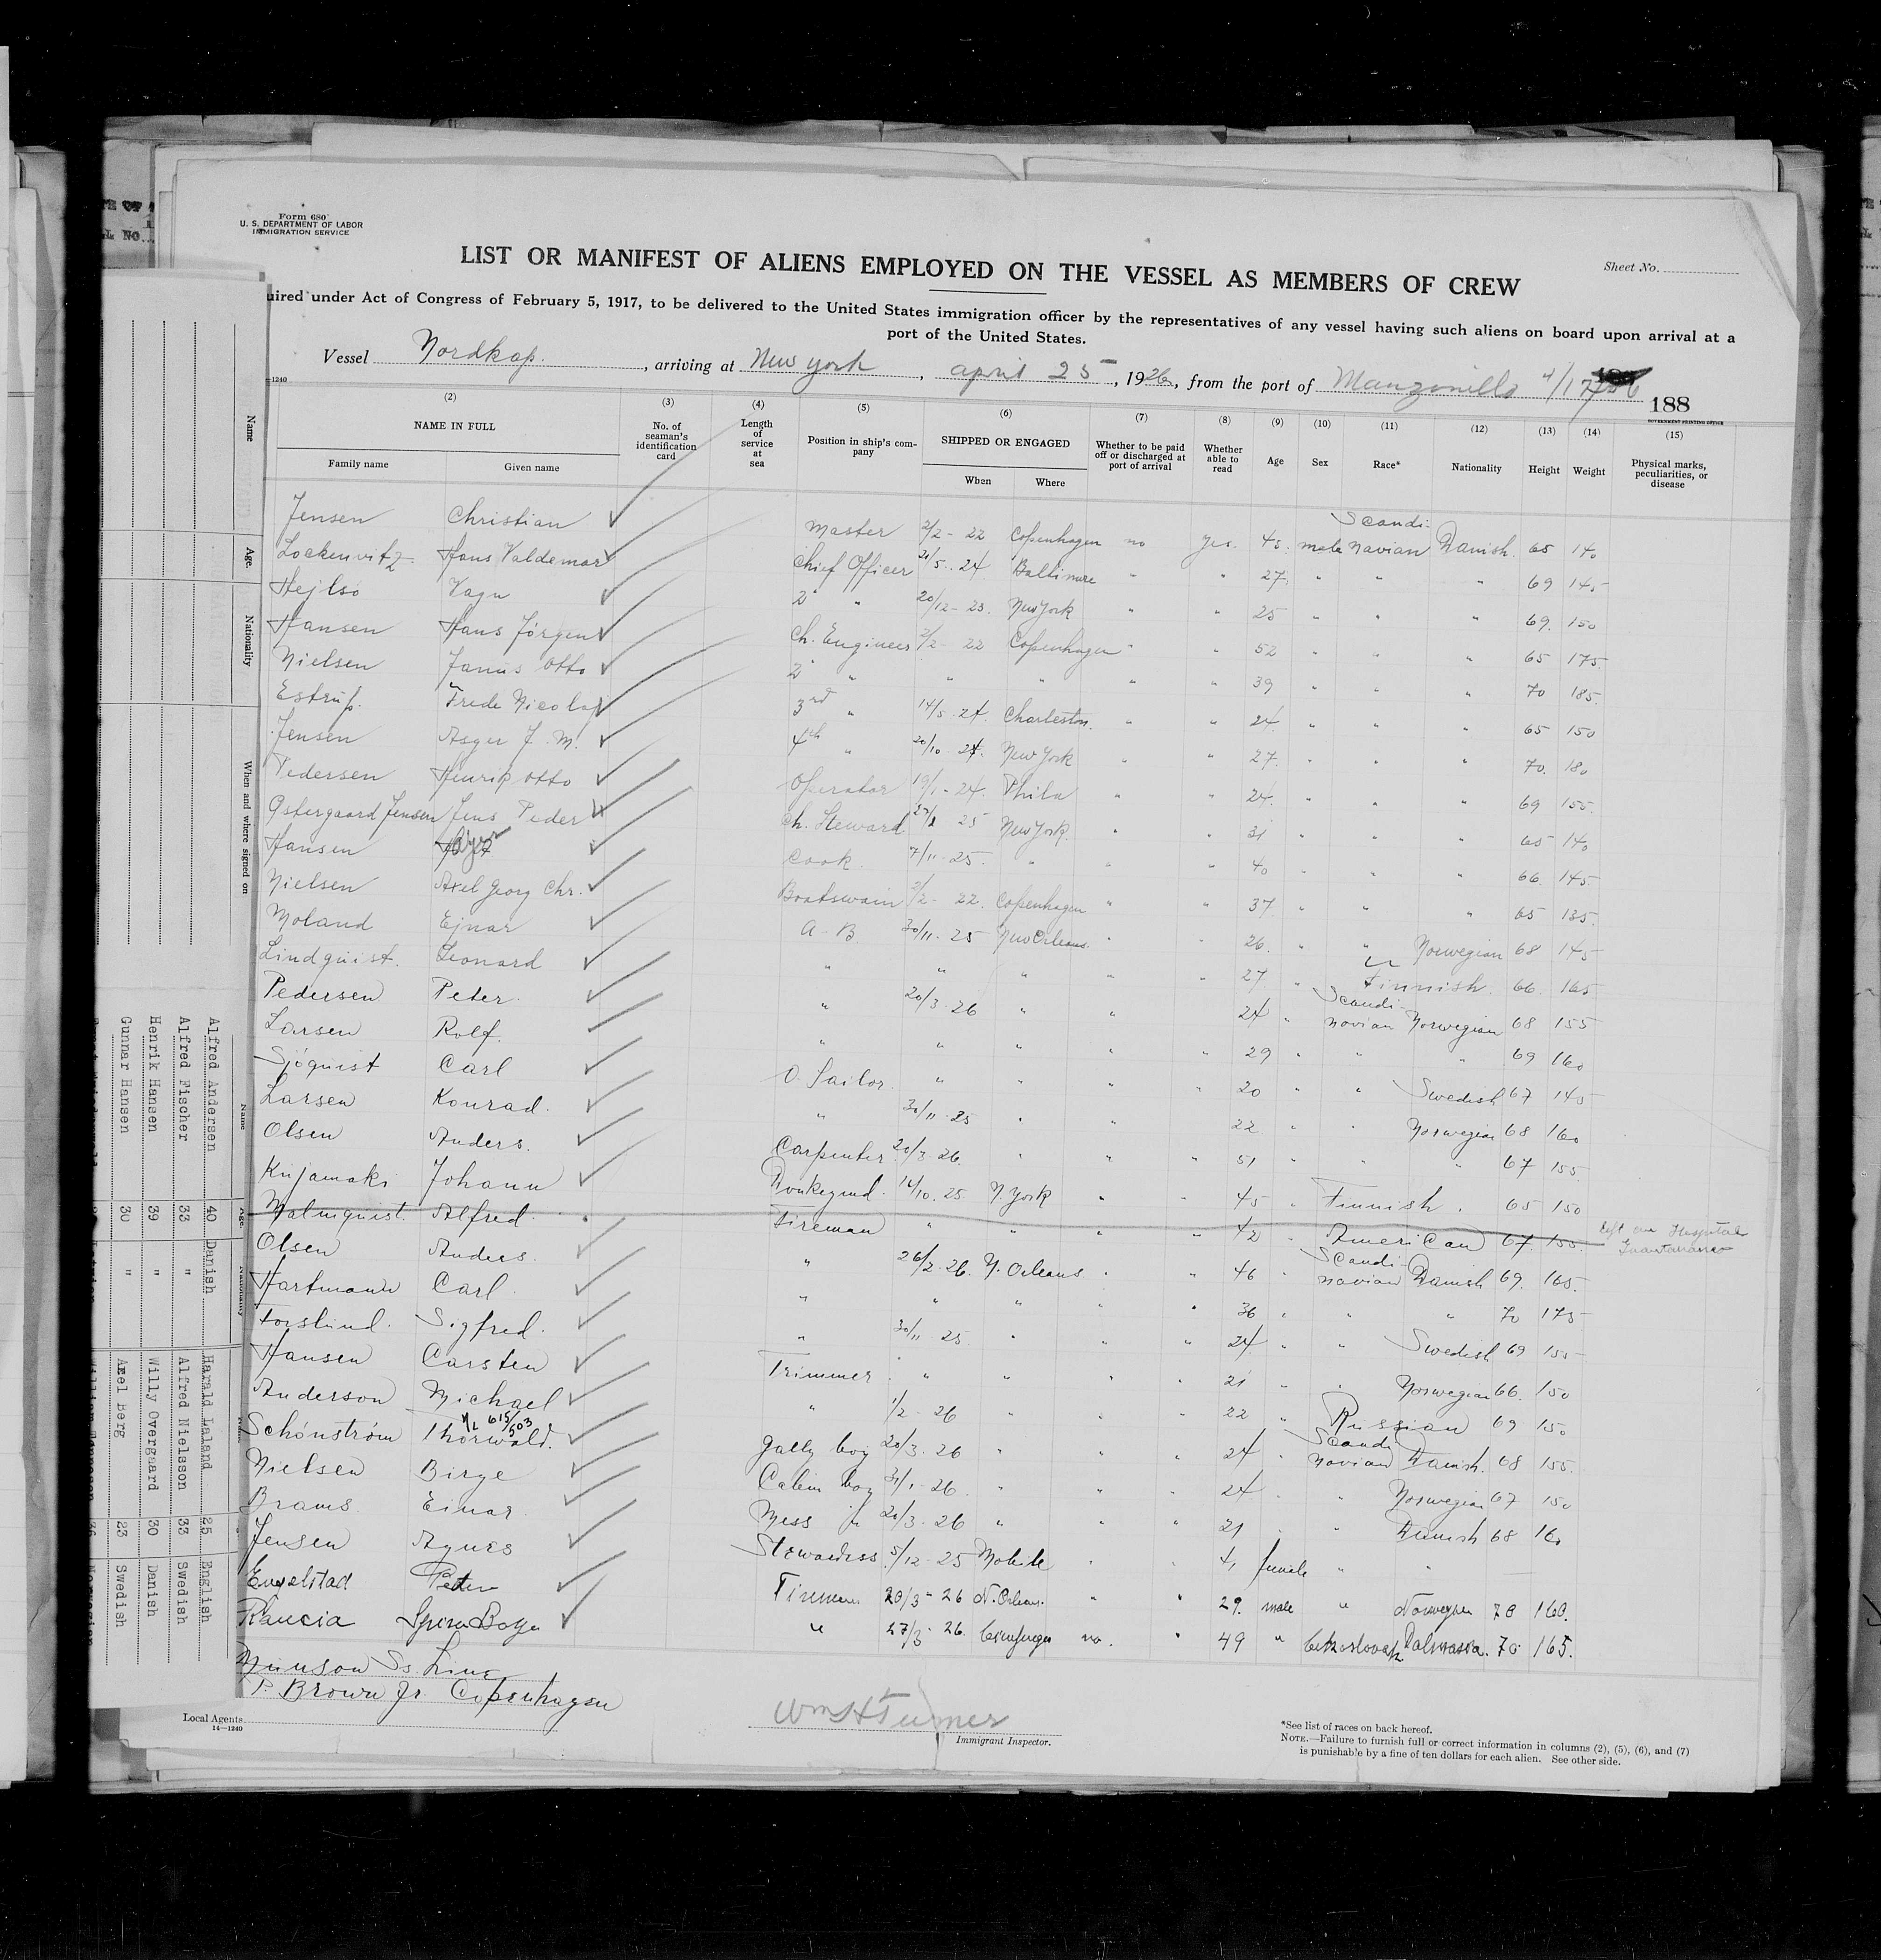 Form 680
U. S. DEPARTMENT OF LABOR
IMMIGRATION SERVICE
Sheet No.
LIST OR MANIFEST OF ALIENS EMPLOYED ON THE VESSEL AS MEMBERS OF CREW
uired under Act of Congress of February 5, 1917, to be delivered to the United States immigration officer by the representatives of any vessel having such aliens on board upon arrival at a
port of the United States.
Vessel Nordkap. , arriving at New york , april 25 , 1926, from the port of Manzanillo
188
(2) (3) (4) (5) (6) (7) (8) (9) (10) (11) (12) (13) (14) (15)
NAME IN FULL No. of seaman's identification card Length of service at sea Position in ship's company SHIPPED OR ENGAGED Whether to be paid off or discharged at port of arrival Whether able to read Age Sex Race* Nationality Height Weight Physical marks, peculiarities, or disease
Family name Given name When Where
Jensen Christian Master 2/2 - 22 Copenhagen no yes. 45. male Scandinavian Danish. 65 140
Lockenvitz Hans Valdemar Chief Officer 21/5 - 24 Baltimore " " 27 " " " 69 145
Hejlsö Vagn 2 " 20/12 - 23. New York " " 25 " " " 69. 150
Hansen Hans Jörgen Ch. Engineer 2/2 - 22 Copenhagen " " 52 " " " 65 175.
Nielsen Janus Otto 2 " " " " " 39 " " " 70 185.
Estrup. Frede Nicolaj 3rd " 14/5 - 24. Charleston. " " 24 " " " 65 150
Jensen Asger J. M. 4th " 20/10 - 24. New York " " 27. " " " 70. 180
Pedersen Henrik Otto Operator 19/1 - 24. Phila " " 24. " " " 69 155.
Ostergaard Jensen Jens Peder Ch. Steward 25 New York. " " 31 " " " 65 140
Hansen Cook. 7/11 - 25. " " " 40 " " " 66. 145
Nielsen Axel Georg Chr. Boatswain 2/2 - 22. Copenhagen " " 37 " " " 65 135.
Moland Ejnar A - B. 30/11 - 25 New Orleans. " " 26. " " Norwegian 68 145
Lindquist. Leonard " " " " " 27. " Finnish 66. 165
Pedersen Peter. " 20/3 - 26 " " 24 " Scandinavian Norwegian 68 155
Larsen Rolf. " " " " " 29 " " " 69 160
Sjöquist Carl O. Sailor. " " " " 20 " " Swedish 67 145
Larsen Konrad. " 30/11 - 25 " " 22 " " Norwegian 68 160
Olsen Anders. Carpenter 20/3 - 26. " " " 51 " " " 67 155
Kujamaki Johann Donkeymd. 14/10. 25 N. York " " 45 " Finnish. " 65 150
Malmquist. Alfred. Fireman " " " " 42 " American 67. 155. left on Hospital
Olsen Anders. " 26/2 - 26. N. Orleans. " " 46 " Scandinavian Danish 69. 165.
Hartmann Carl. " " " " " 36 " " " 70 175
Forslund. Sigfred. " 30/11 - 25 " " " 24 " " Swedish 69 155
Hansen Carsten Trimmer. " " " " 21 " " Norwegian 66. 150
Anderson Michael " 1/2 - 26 " " " 22 " Russian 69 150
Schönström Thorwald. Gally boy 20/3 - 26 " " " 24 " Scandinavian Danish. 68 155.
Nielsen Birge Cabin boy 31/1 - 26. " " " 24 " " Norwegian 67 150
Brams Einar Mess " 20/3 - 26 " " " 21 " " Danish 68 160
Jensen Agnes Stewardess. 5/12 - 25 Mobile " " 41 female " "
Engelstad Peter Fireman 20/3 - 26 N. Orleans. " " 29. male " Norwegen 70 160.
Rancia " 27/3 - 26. no. " 49 " 70. 165.
Munson Ss. Line
P. Brown Jr. Copenhagen
Local Agents
14—1240
Wm H Turner
Immigrant Inspector.
*See list of races on back hereof.
NOTE.—Failure to furnish full or correct information in columns (2), (5), (6), and (7)
is punishable by a fine of ten dollars for each alien. See other side.
Name
Age.
Nationality
When and where signed on
Alfred Andersen 40 Danish Harald Laland 25 English
Alfred Fischer 33 " Alfred Nielsson 33 Swedish
Henrik Hansen 39 " Willy Overgaard 30 Danish
Gunnar Hansen 30 " Axel Berg 23 Swedish